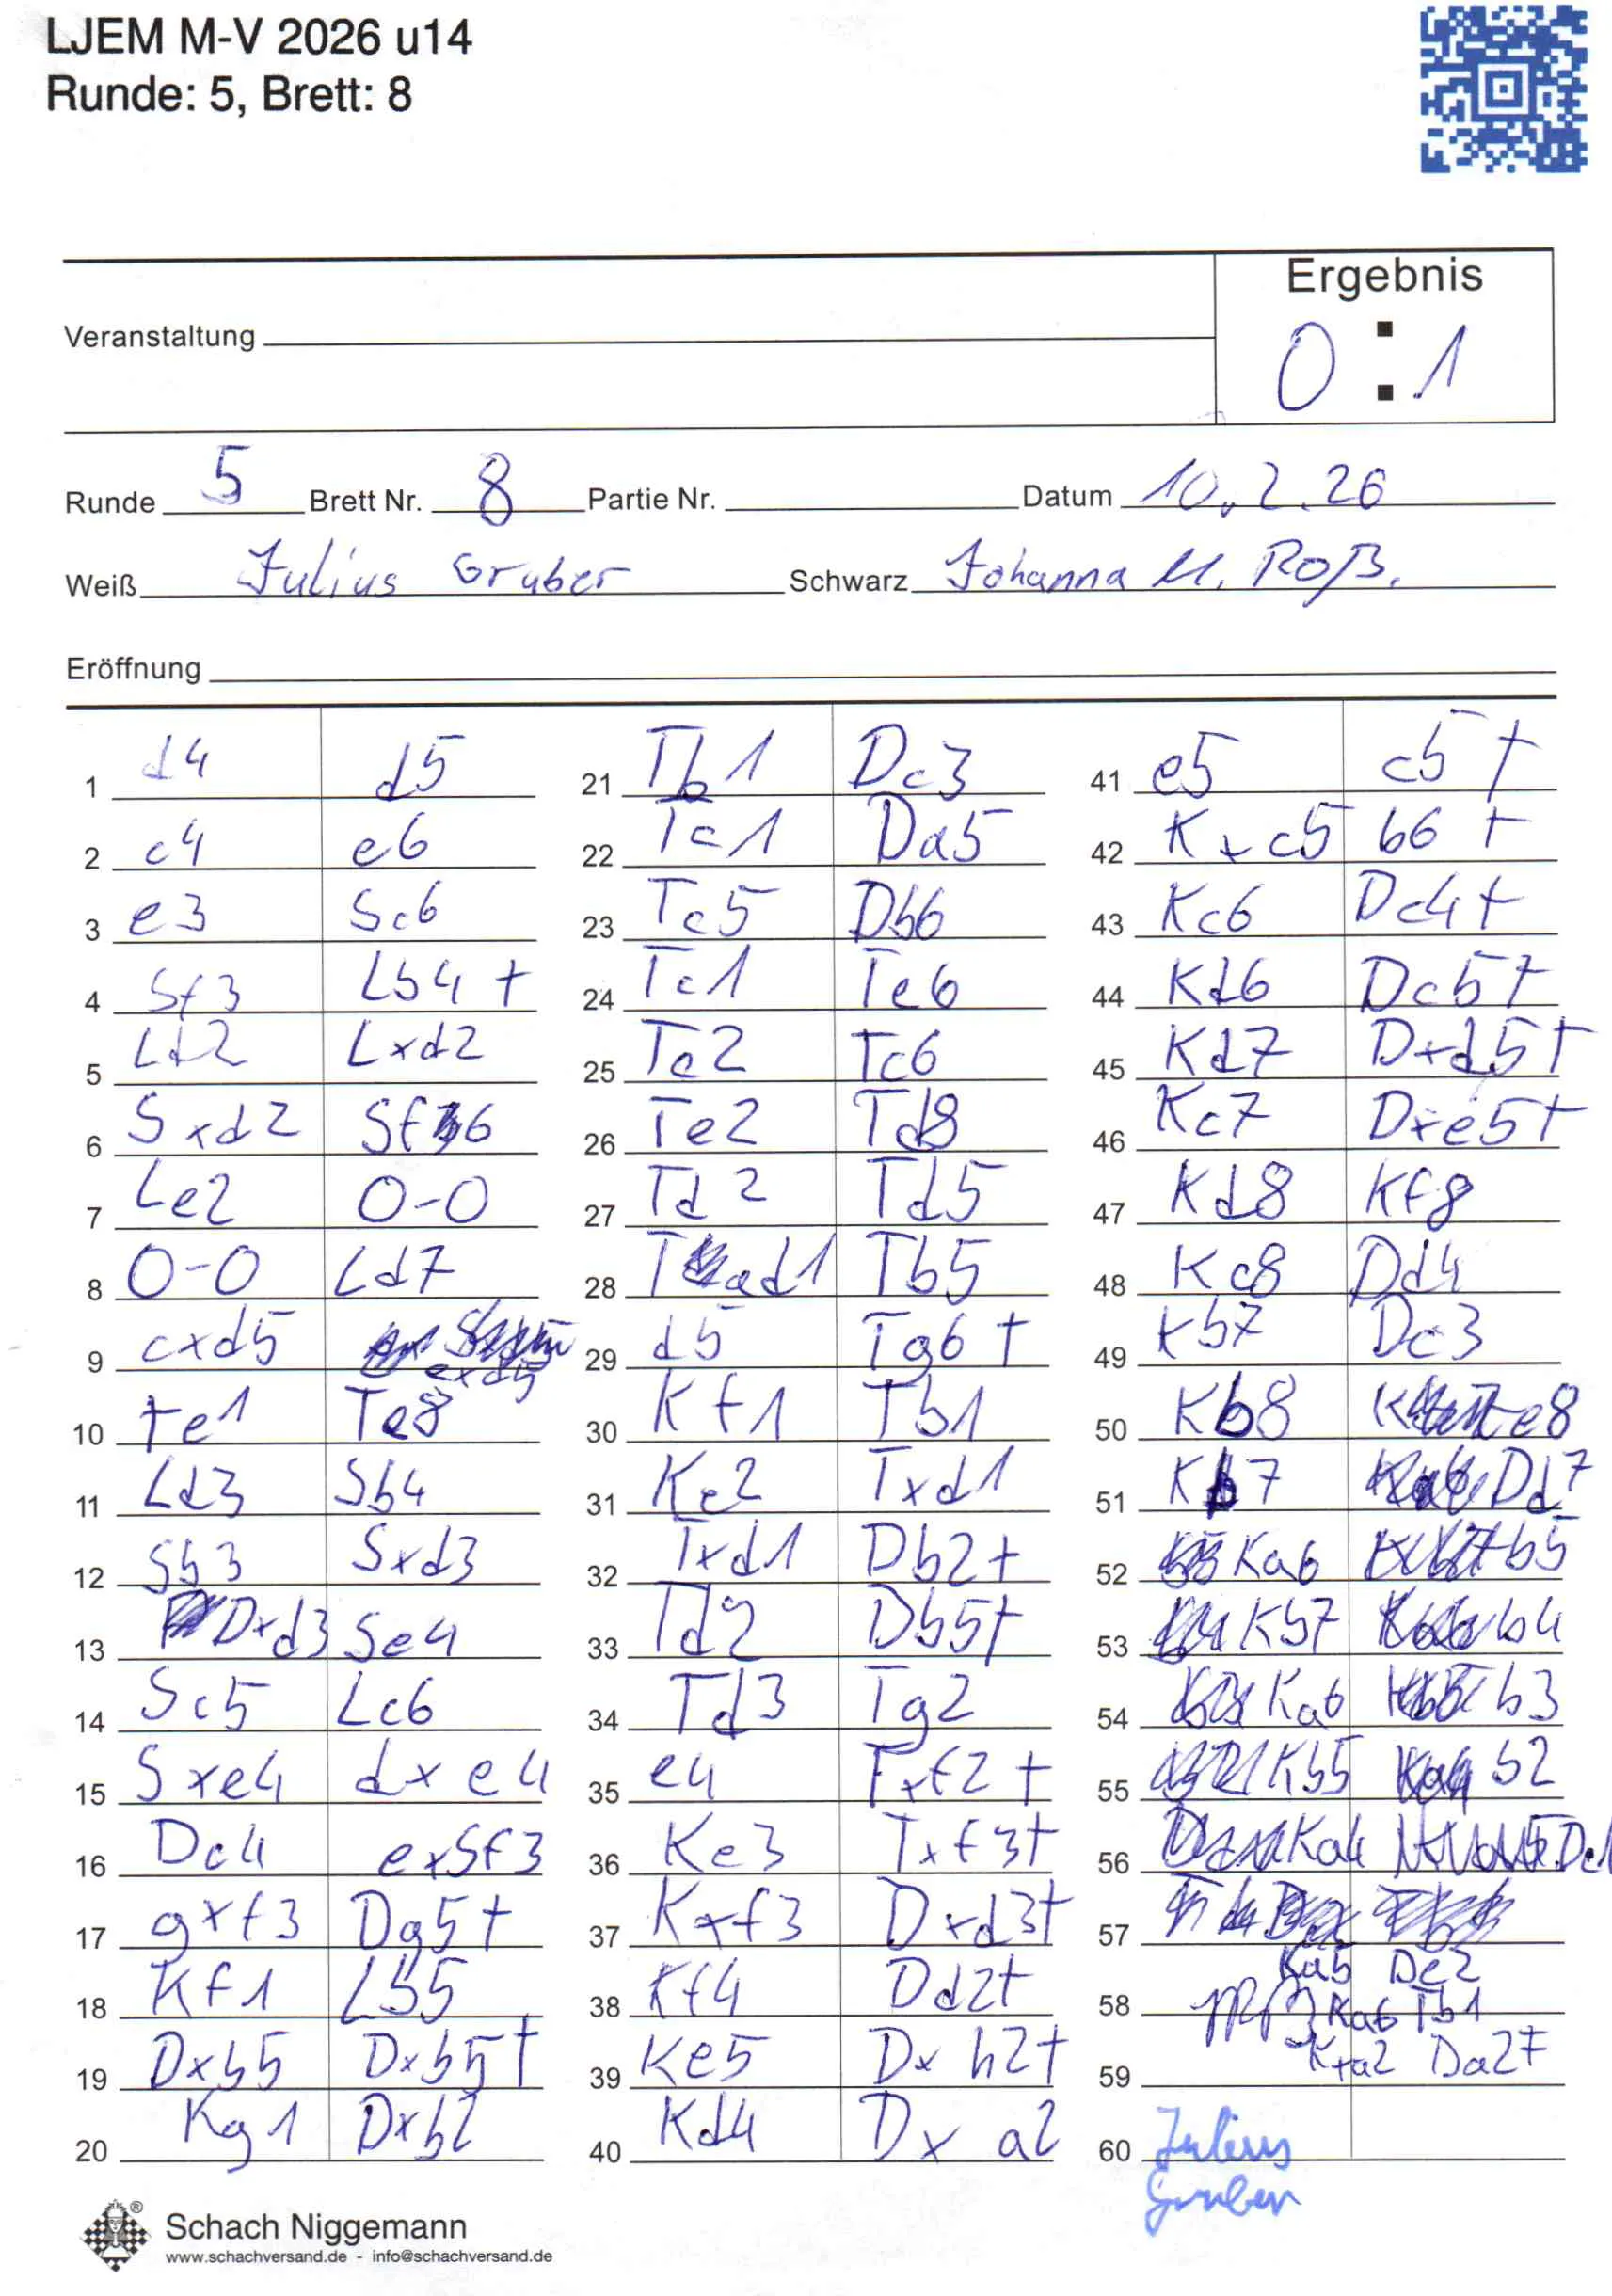 LJEM M-V 2026 u14
Runde: 5, Brett: 8
Ergebnis
Veranstaltung
0 : 1
Runde 5 Brett Nr. 8 Partie Nr. Datum 10.2.26
Weiß Julius Gruber Schwarz Johanna M. Roß.
Eröffnung
1 d4 d5
2 c4 e6
3 e3 Sc6
4 Sf3 Lb4 +
5 Ld2 Lxd2
6 Sxd2 Sf6
7 Le2 0-0
8 0-0 Ld7
9 cxd5 exd5
10 Te1 Te8
11 Ld3 Sb4
12 Sb3 Sxd3
13 Dxd3 Se4
14 Sc5 Lc6
15 Sxe4 dxe4
16 Dc4 exSf3
17 gxf3 Dg5+
18 Kf1 Lb5
19 Dxb5 Dxb5+
20 Kg1 Dxb2
21 Tb1 Dc3
22 Tc1 Da5
23 Tc5 Db6
24 Tc1 Te6
25 Tc2 Tc6
26 Te2 Td8
27 Td2 Td5
28 Tad1 Tb5
29 d5 Tg6+
30 Kf1 Tb1
31 Ke2 Txd1
32 Txd1 Db2+
33 Td2 Db5+
34 Td3 Tg2
35 e4 Txf2+
36 Ke3 Txf3+
37 Kxf3 Dxd3+
38 Kf4 Dd2+
39 Ke5 Dxh2+
40 Kd4 Dxa2
41 e5 c5+
42 Kxc5 b6+
43 Kc6 Dc4+
44 Kd6 Dc5+
45 Kd7 Dxd5+
46 Kc7 Dxe5+
47 Kd8 Kf8
48 Kc8 Dd4
49 Kb7 Dc3
50 Kb8 Te8
51 Kb7 Dd7
52 Ka6 b5
53 Kb7 b4
54 Ka6 b3
55 Kb5 b2
56 Ka4
57
Ka5 De2
58 Ka6 Tb1
Kxa2 Da2+
59
60 Julius
Gruber
Schach Niggemann
www.schachversand.de - info@schachversand.de